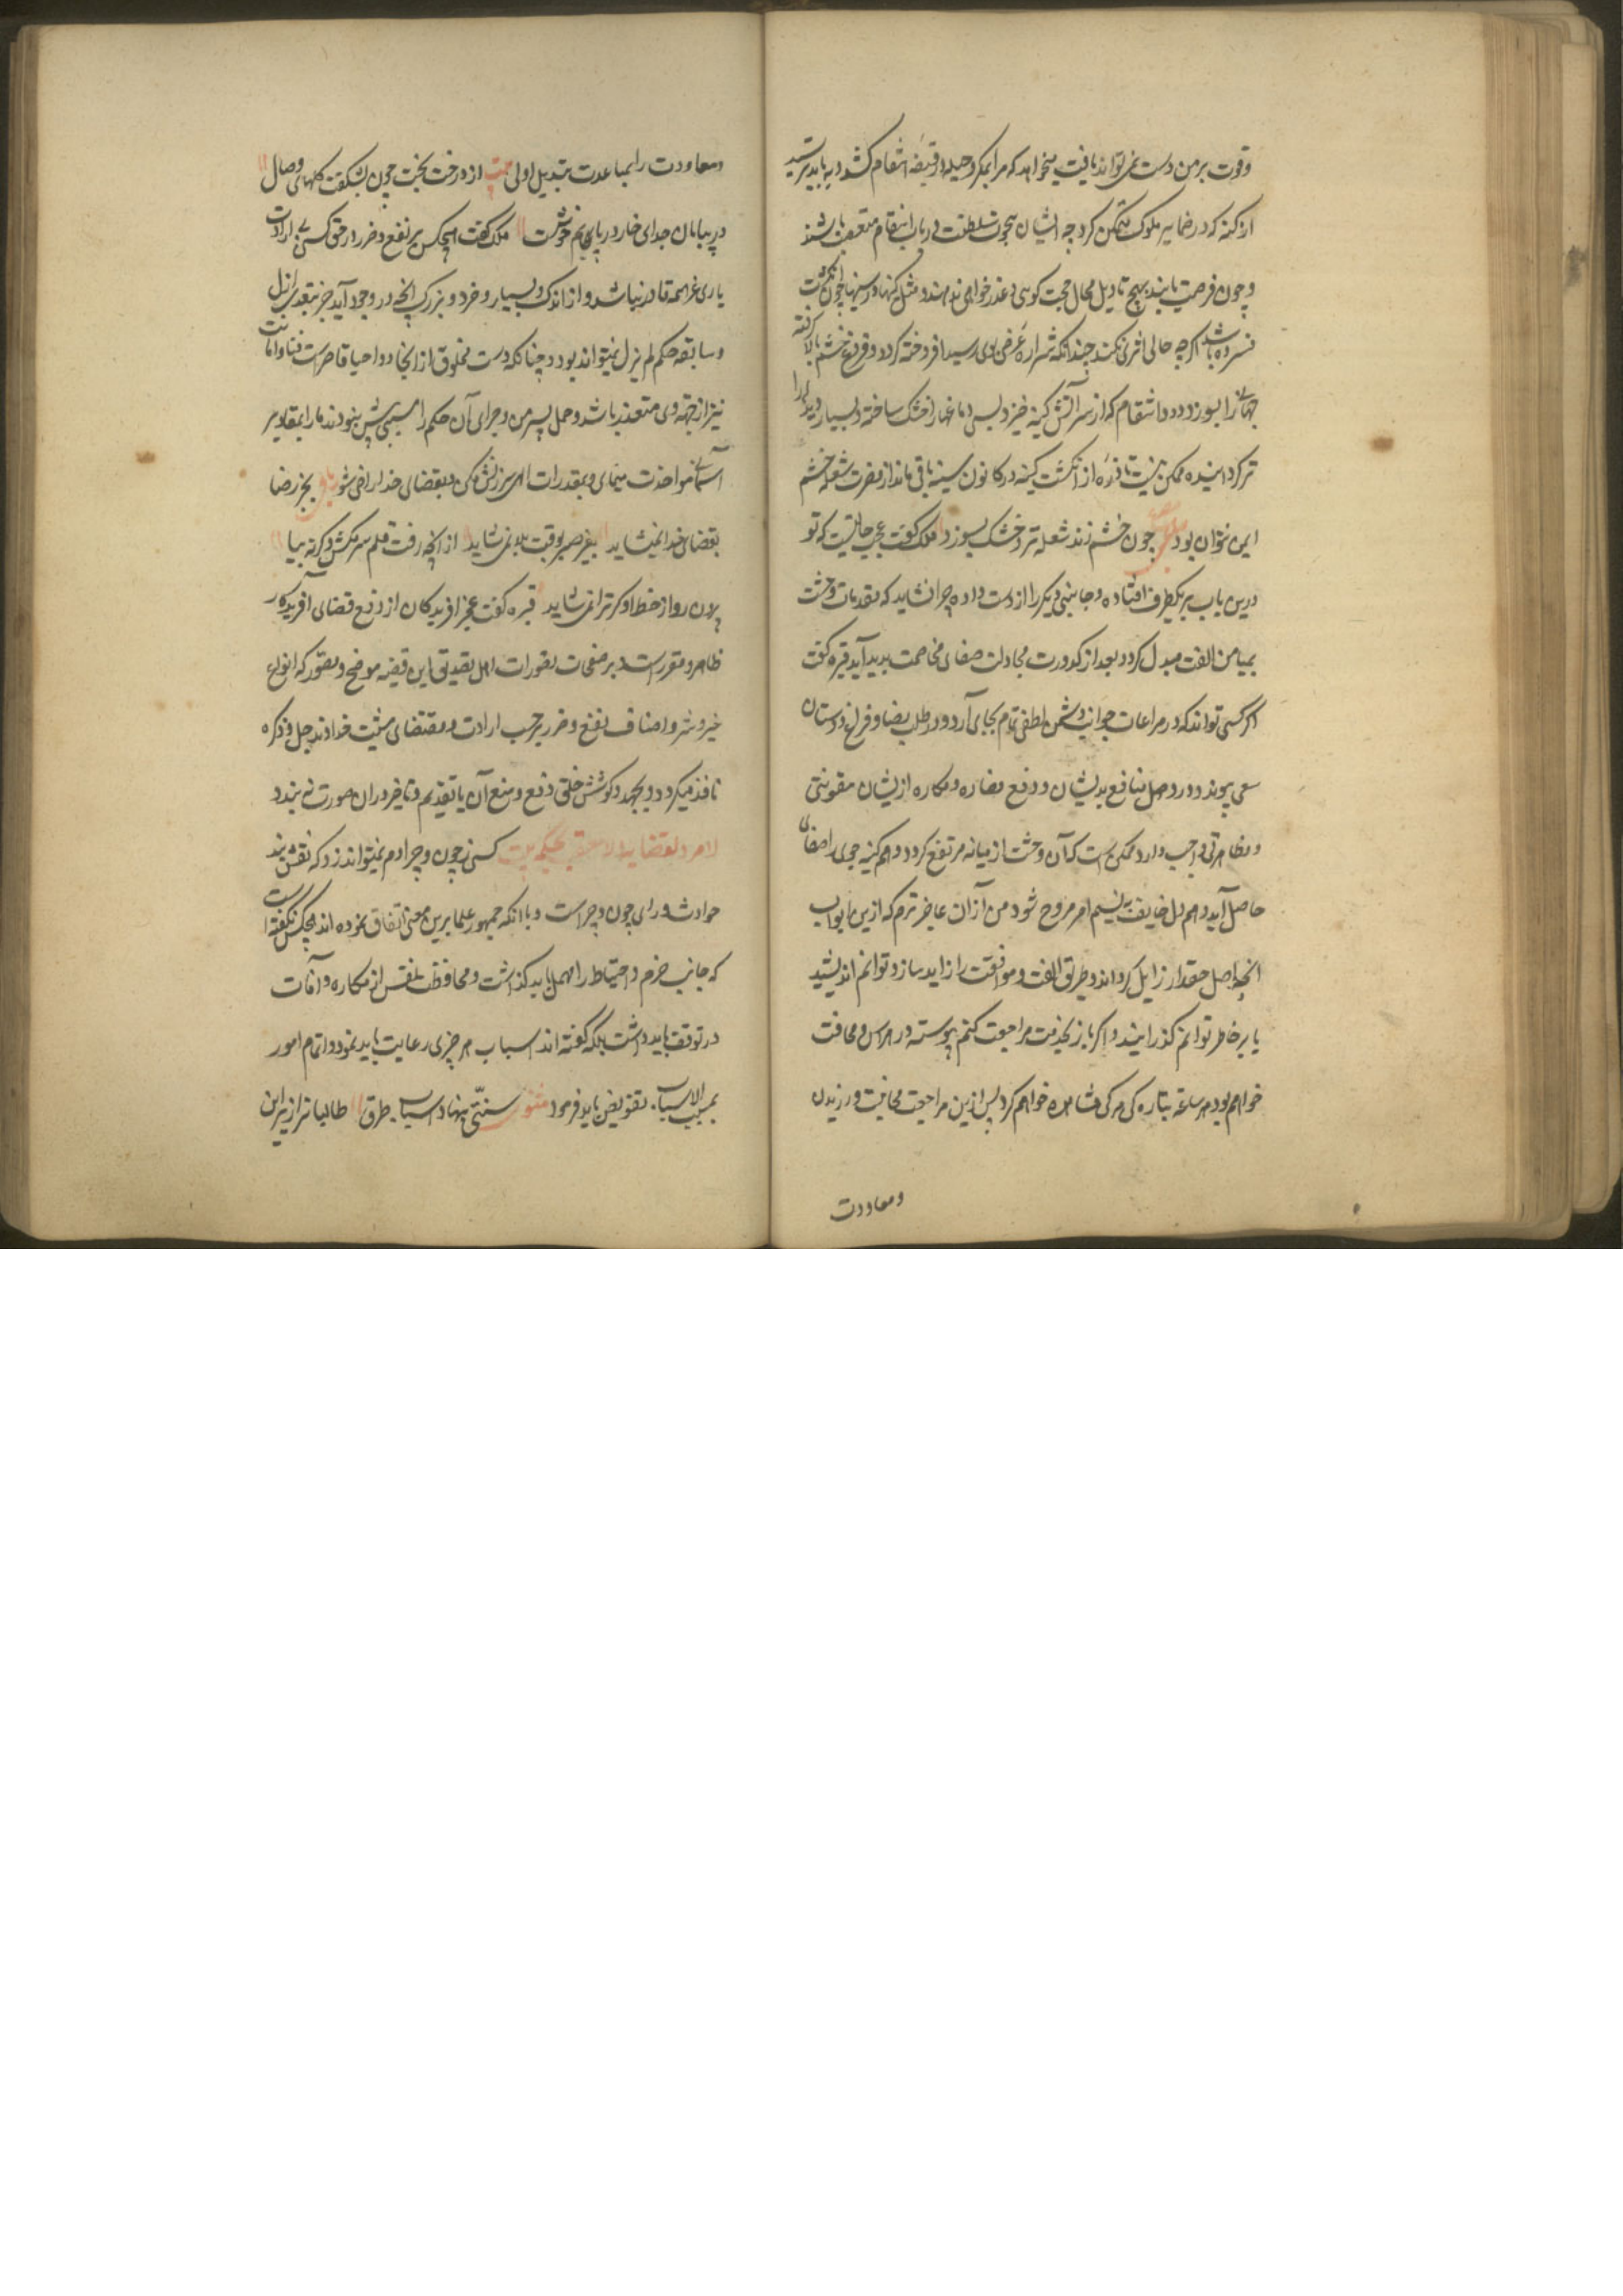 وقوت بر من دست نمی تواند یافت میخواهد که مرا بمکر و حیله در قبضه انتقام کشد و بباید ترسید
از کینه که در ضمایر ملوک متمکن کردد چه ایشان بنخوت سلطنت در باب انتقام متعصب باشند
و چون فرصت یابند بهیچ تاویل مجال حجت کوئی و عذر خواهی ندهند و مثل کینها در سینها چون انکشت
فسرده باشد اکر چه حالی اثری نکند چندانکه شراره غرض بوی رسید افروخته کردد و فروغ خشم بالا کرفته
جهانی را بسوزد و دود انتقام که از سر آتش کینه خیزد بسی دماغها را خشک ساخته و بسیار دیده را
تر کرداند و ممکن نیست تا ذره از انکشت کینه در کانون سینه باقی ماند از مضرت شعله خشم
ایمن توان بود چون خشم زند شعله تر و خشک بسوزد ملک کفت عجب حالتیست که تو
درین باب بر یکطرف افتاده و جانب دیکر را از دست داده چرا نشاید که مقدمات وحشت
بمیامن الفت مبدل کردد و بعد از کدورت مجادلت صفای مخاصمت پدید آید قبره کفت
اکر کسی تواند که در مراعات جوانب دشمن لطفی تمام بجای آرد و در طلب رضا و فراغ دوستان
سعی پیوندد و در وصل منافع بدیشان و دفع مضاره و مکاره از یشان معونتی
و مظاهرتی واجب دارد ممکن است که آن وحشت از میانه مرتفع کردد و هم کینه جوی را صفائی
حاصل آید و هم دل خایف به نسیم امن مروح شود من از آن عاجز ترم که ازین ابواب
انچه اصل حقد را زایل کرداند و طریق الفت و موافقت را زاید سازد توانم اندیشید
یا بر خاطر توانم کذرانید و اکر باز بخدمت مراجعت کنم پیوسته در هراس و مخافت
خواهم بود و هر ساعت بتازه کی مرکی مشاهده خواهم کرد پس ازین مراجعت مجانبت ورزیدن
ومعاودت
ومعاودت را بمباعدت تبدیل اولی بیت از درخت بخت چون نشکفت کلهای وصال
در بیابان جدای خار در پا بهم خوشست ملک کفت هیچکس بر نفع و ضرر در حق کسی بی ارادت
باری عزاسمه قادر نباشد و از اندک و بسیار و خرد و بزرک انچه در وجود آید جز بتقدیر ازل
و سابقه حکم لم یزل نمیتواند بود و چنانکه دست مخلوق از ایجاد و احیا قاصر است فنا و اماتت
نیز از جهة وی متعذر باشد و عمل پسر من و جزای آن حکم را سببی بیش نبودند ما را بمقادیر
آسمانی مواخذت مینمای و بمقدرات الهی سرزنش مکن و بقضای خدا راضی شو رباعی بجز رضا
بقضای خدا نمیشاید بغیر صبر بوقت بلا نمی شاید از انچه رفت قلم سر مکش و کرنه بیا
برون رو از خط او کر ترا نمی شاید قبره کفت عجز آفریدکان از دفع قضای آفریدکار
ظاهر و مقرر است و بر صفحات تصورات اهل تصدیق این قضیه موضح و مصور که انواع
خیر و شر و اصناف نفع و ضرر بر حسب ارادت و مقتضای مشیت خداوند جل ذکره
نافذ میکردد و بجهد و کوشش خلق دفع و منع آن یا تقدیم و تاخیر در آن صورت نه بندد
لا مرد لقضایه ولا معقب لحکمه بیت کسی ز چون و چرا دم نمیتواند زد که نقش بند
حوادث ورای چون و چراست و با انکه جمهور علما برین معنی اتفاق نموده اند هیچکس نکفته است
که جانب حزم و احتیاط را مهمل باید کذاشت و محافظت نفس از مکاره و آفات
در توقف باید داشت بلکه کفته اند اسباب هر چیزی رعایت باید نمود و اتمام امور
بمسبب الاسباب تفویض باید فرمود مثنوی سنتی بنهاد و اسباب و طرق طالبانرا زیر این